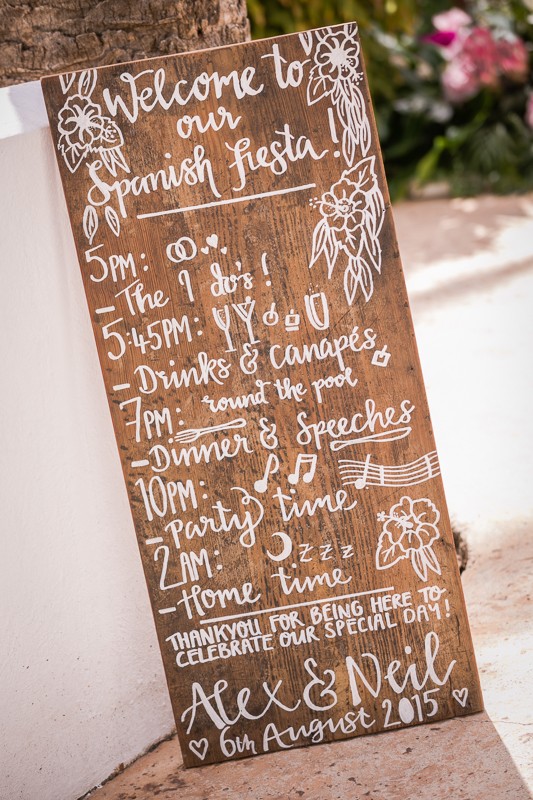 Welcome to
our
Spanish fiesta!
5PM:
- The I do's!
5:45PM:
- Drinks & canapés
round the pool
7PM:
- Dinner & Speeches
10PM:
- Party time
2AM: zzz
- Home time
THANKYOU FOR BEING HERE TO
CELEBRATE OUR SPECIAL DAY!
Alex & Neil
6th August 2015